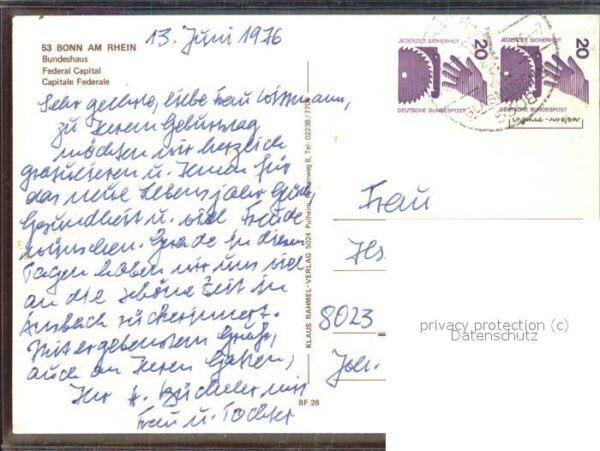 53 BONN AM RHEIN
Bundeshaus
Federal Capital
Capitale Federale
13. Juni 1976
Sehr geehrte, liebe Frau
zu Ihrem Geburtstag
möchten wir herzlich
gratulieren u. Ihnen für
das neue Lebensjahr Glück,
Gesundheit u. viel Freude
wünschen. Gerade in diesen
Tagen haben wir uns viel
an die schöne Zeit in
Ansbach zurückerinnert.
Mit ergebenstem Gruß,
auch an Ihren Gatten,
Ihr
Frau u. Tochter
KLAUS RAHMEL-VERLAG 5024 Pulheim, 8, Tel: 02238/
BF 28
JEDERZEIT SICHERHEIT
20
DEUTSCHE BUNDESPOST
JEDERZEIT SICHERHEIT
20
DEUTSCHE BUNDESPOST
Frau
8023
privacy protection (c)
Datenschutz